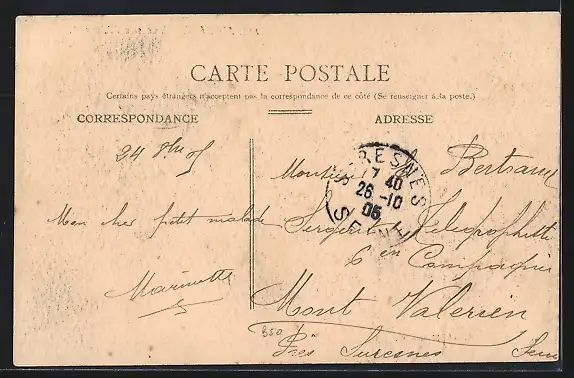 CARTE POSTALE
Certains pays étrangers n'acceptent pas la correspondance de ce côté (Se renseigner à la poste.)
CORRESPONDANCE
ADRESSE
24 8bre 05
Mon cher petit malade
Marinette
SURESNES
7 40
26 -10
05
SEINE
Monsieur Bertrand
Sergent Télégraphiste
6 en Compagnie
Mont Valerien
Près Suresnes
Seine
350